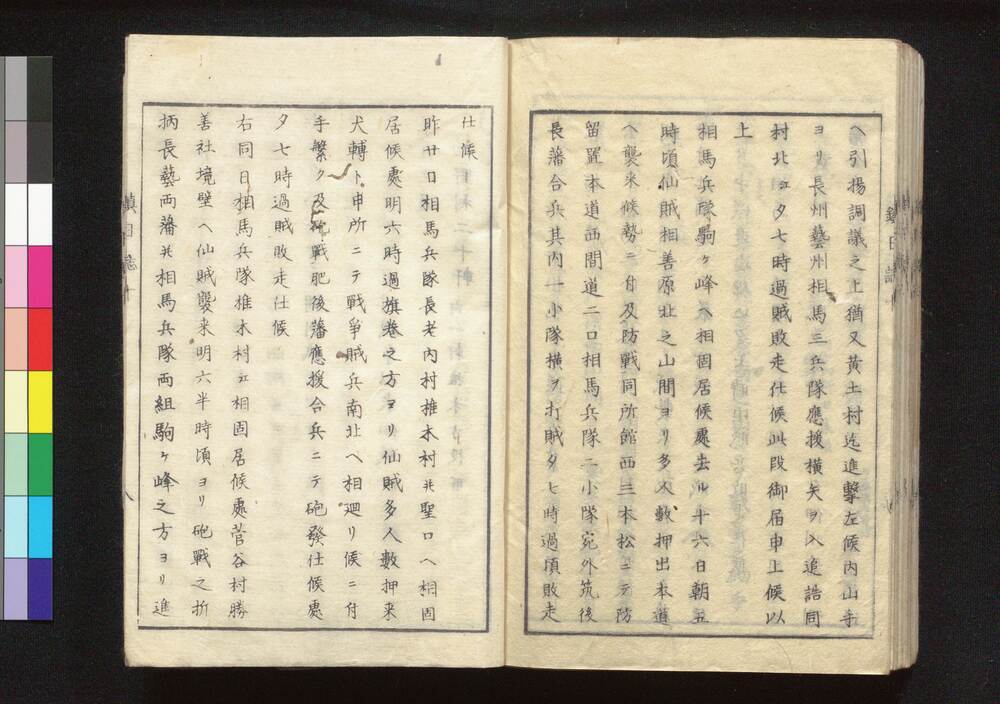 ヘ引揚調議之上猶又黄土村迄進撃左候内山手
ヨリ長州藝州相馬三兵隊應援横矢ヲ入追詰同
村北ニ夕七時過賊敗走仕候此段御届申上候以
上
相馬兵隊駒ケ峰ヘ相固居候處去ル十六日朝五
時頃仙賊相善原北之山間ヨリ多人數押出本道
ヘ襲来候勢ニ付及防戰同所館西三本松ニテ防
留置本道西間道二口相馬兵隊二小隊宛外筑後
長藩合兵其内一小隊横ヲ打賊夕七時過頃敗走
仕候
昨廿日相馬兵隊長老内村推木村并聖口ヘ相固
居候處明六時過旗巻之方ヨリ仙賊多人數押来
犬轉ト申所ニテ戰爭賊兵南北ヘ相廻リ候ニ付
手繁ク及砲戰肥後藩應援合兵ニテ砲發仕候處
夕七時過賊敗走仕候
右同日相馬兵隊推木村ニ相固居候處菅谷村勝
善社境壁ヘ仙賊襲来明六半時頃ヨリ砲戰之折
柄長藝両藩并相馬兵隊両組駒ケ峰之方ヨリ進
鎮日誌十
八